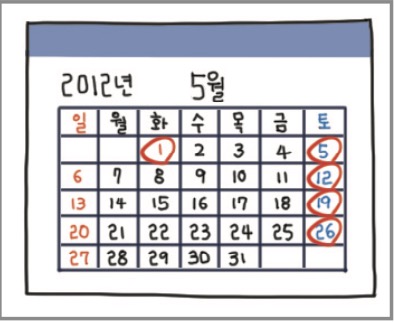 2012년 5월
일 월 화 수 목 금 토
1 2 3 4 5
6 7 8 9 10 11 12
13 14 15 16 17 18 19
20 21 22 23 24 25 26
27 28 29 30 31